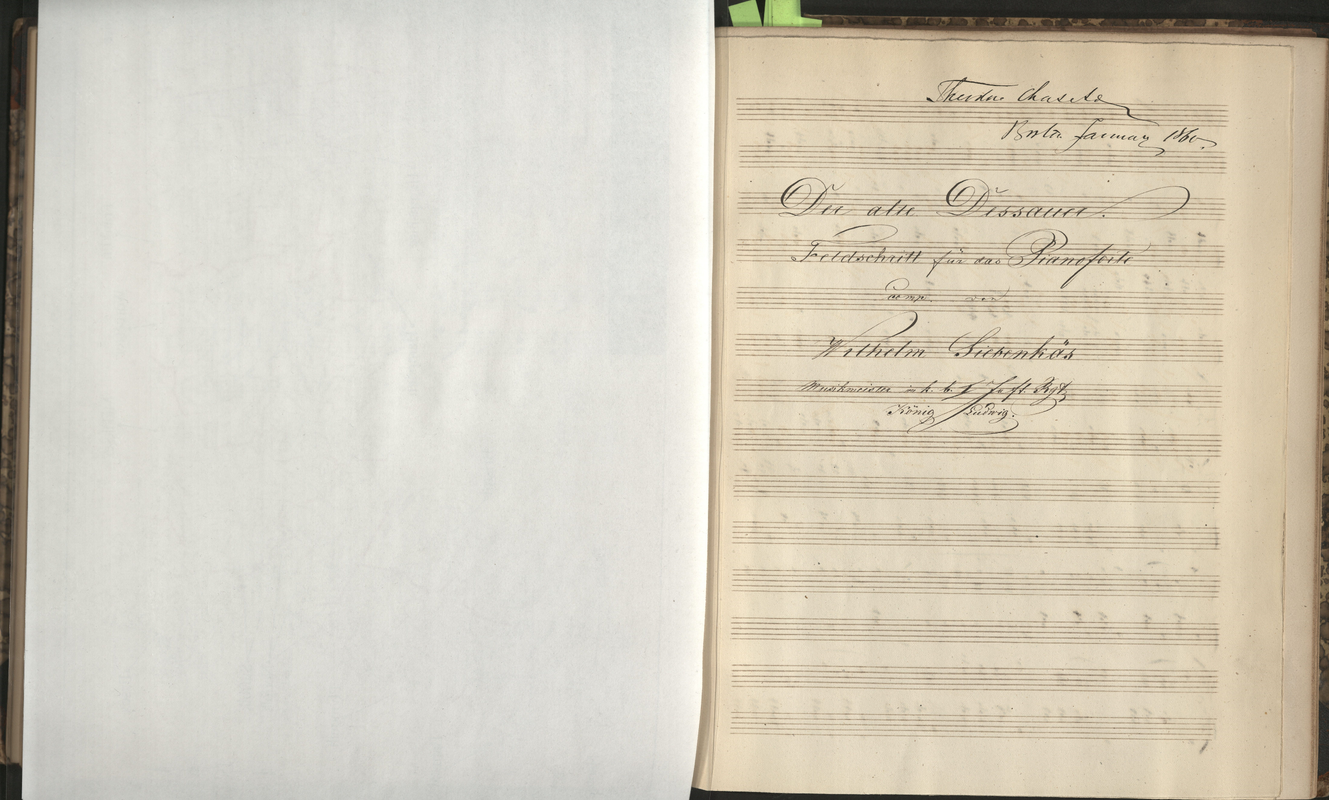 Theodore Chase Ad
January 1860.
Der alte Dessauer.
Feldschritt für das Pianoforte
Comp. von
Wilhelm Siebenkäs
Musikmeister im k. b. Inft. Rgt.
König Ludwig.